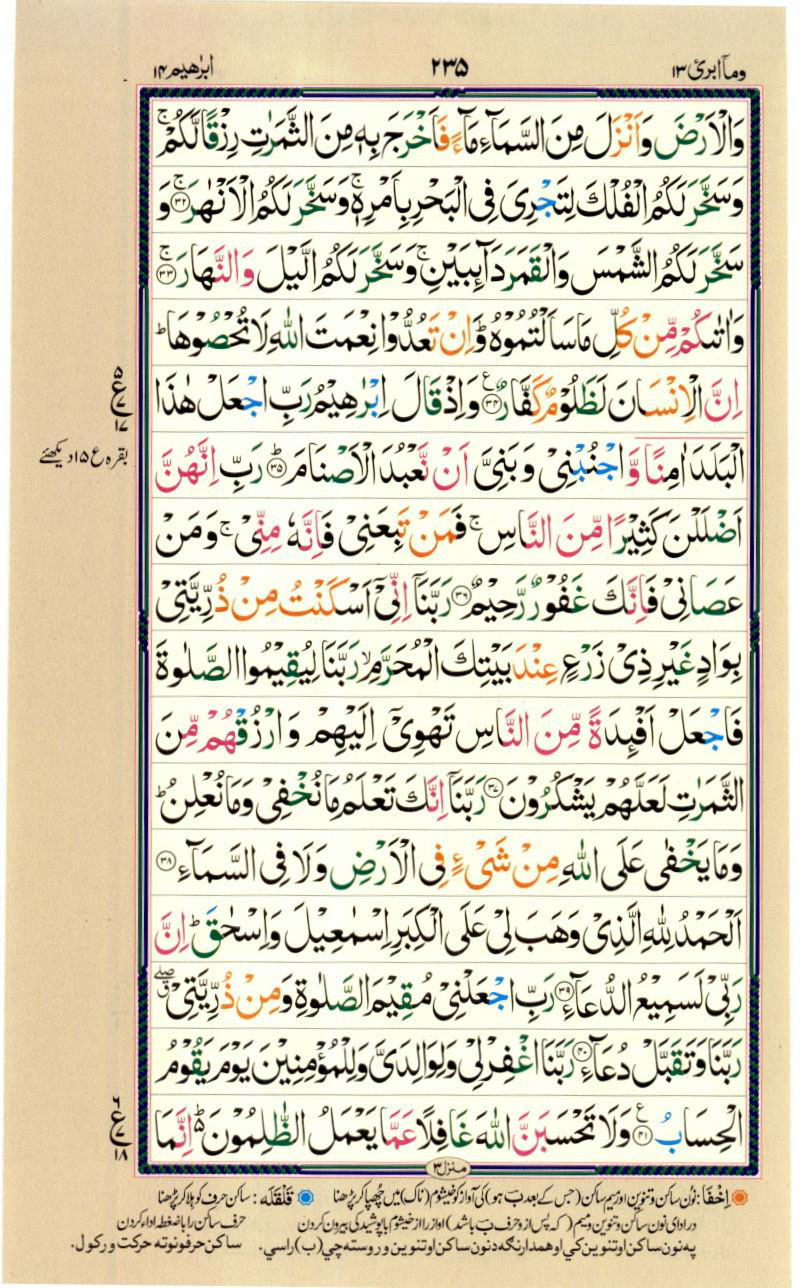 ومآ ابرئ ۱۳ ۲۳۵ ابرٰهيم ۱۴
وَالْاَرْضَ وَاَنْزَلَ مِنَ السَّمَآءِ مَآءً فَاَخْرَجَ بِهٖ مِنَ الثَّمَرٰتِ رِزْقًا لَّكُمْ ۚ
وَسَخَّرَ لَكُمُ الْفُلْكَ لِتَجْرِىَ فِى الْبَحْرِ بِاَمْرِهٖ ۚ وَسَخَّرَ لَكُمُ الْاَنْهٰرَ ۚ ﴿۳۲﴾ وَ
سَخَّرَ لَكُمُ الشَّمْسَ وَالْقَمَرَ دَآئِبَيْنِ ۚ وَسَخَّرَ لَكُمُ الَّيْلَ وَالنَّهَارَ ۚ ﴿۳۳﴾
وَاٰتٰىكُمْ مِّنْ كُلِّ مَا سَاَلْتُمُوْهُ ؕ وَاِنْ تَعُدُّوْا نِعْمَتَ اللّٰهِ لَا تُحْصُوْهَا ؕ
اِنَّ الْاِنْسَانَ لَظَلُوْمٌ كَفَّارٌ ﴿۳۴﴾ ع وَاِذْ قَالَ اِبْرٰهِيْمُ رَبِّ اجْعَلْ هٰذَا
۵ ع ۷ ۱۷
الْبَلَدَ اٰمِنًا وَّاجْنُبْنِىْ وَبَنِىَّ اَنْ نَّعْبُدَ الْاَصْنَامَ ؕ ﴿۳۵﴾ رَبِّ اِنَّهُنَّ
بقرہ ع ۱۵ دیکھئے
اَضْلَلْنَ كَثِيْرًا مِّنَ النَّاسِ ۚ فَمَنْ تَبِعَنِىْ فَاِنَّهٗ مِنِّىْ ۚ وَمَنْ
عَصَانِىْ فَاِنَّكَ غَفُوْرٌ رَّحِيْمٌ ﴿۳۶﴾ رَبَّنَاۤ اِنِّىْۤ اَسْكَنْتُ مِنْ ذُرِّيَّتِىْ
بِوَادٍ غَيْرِ ذِىْ زَرْعٍ عِنْدَ بَيْتِكَ الْمُحَرَّمِ ۙ رَبَّنَا لِيُقِيْمُوا الصَّلٰوةَ
فَاجْعَلْ اَفْئِدَةً مِّنَ النَّاسِ تَهْوِىْۤ اِلَيْهِمْ وَارْزُقْهُمْ مِّنَ
الثَّمَرٰتِ لَعَلَّهُمْ يَشْكُرُوْنَ ﴿۳۷﴾ رَبَّنَاۤ اِنَّكَ تَعْلَمُ مَا نُخْفِىْ وَمَا نُعْلِنُ ؕ
وَمَا يَخْفٰى عَلَى اللّٰهِ مِنْ شَىْءٍ فِى الْاَرْضِ وَلَا فِى السَّمَآءِ ﴿۳۸﴾
اَلْحَمْدُ لِلّٰهِ الَّذِىْ وَهَبَ لِىْ عَلَى الْكِبَرِ اِسْمٰعِيْلَ وَاِسْحٰقَ ؕ اِنَّ
رَبِّىْ لَسَمِيْعُ الدُّعَآءِ ﴿۳۹﴾ رَبِّ اجْعَلْنِىْ مُقِيْمَ الصَّلٰوةِ وَمِنْ ذُرِّيَّتِىْ ۖ ق
رَبَّنَا وَتَقَبَّلْ دُعَآءِ ﴿۴۰﴾ رَبَّنَا اغْفِرْ لِىْ وَلِوَالِدَىَّ وَلِلْمُؤْمِنِيْنَ يَوْمَ يَقُوْمُ
الْحِسَابُ ﴿۴۱﴾ ع وَلَا تَحْسَبَنَّ اللّٰهَ غَافِلًا عَمَّا يَعْمَلُ الظّٰلِمُوْنَ ؕ اِنَّمَا
۶ ع ۷ ۱۸
منزل ۳
اِخْفَا: نون ساکن و تنوین اور میم ساکن (جس کے بعد ب ہو) کی آواز کو خیشوم (ناک) میں چھپا کر پڑھنا قَلْقَلَه: ساکن حرف کو ہلا کر پڑھنا
در ادای نون ساکن و تنوین و میم (که پس از و حرف ب باشد) آواز را از خیشوم با پوشیدگی بیرون کردن حرف ساکن را با غطه اداء کردن
په نون ساکن او تنوین کي او همدارنګه د نون ساکن او تنوین وروسته چي (ب) راسي. ساکن حرفونو ته حرکت ورکول.